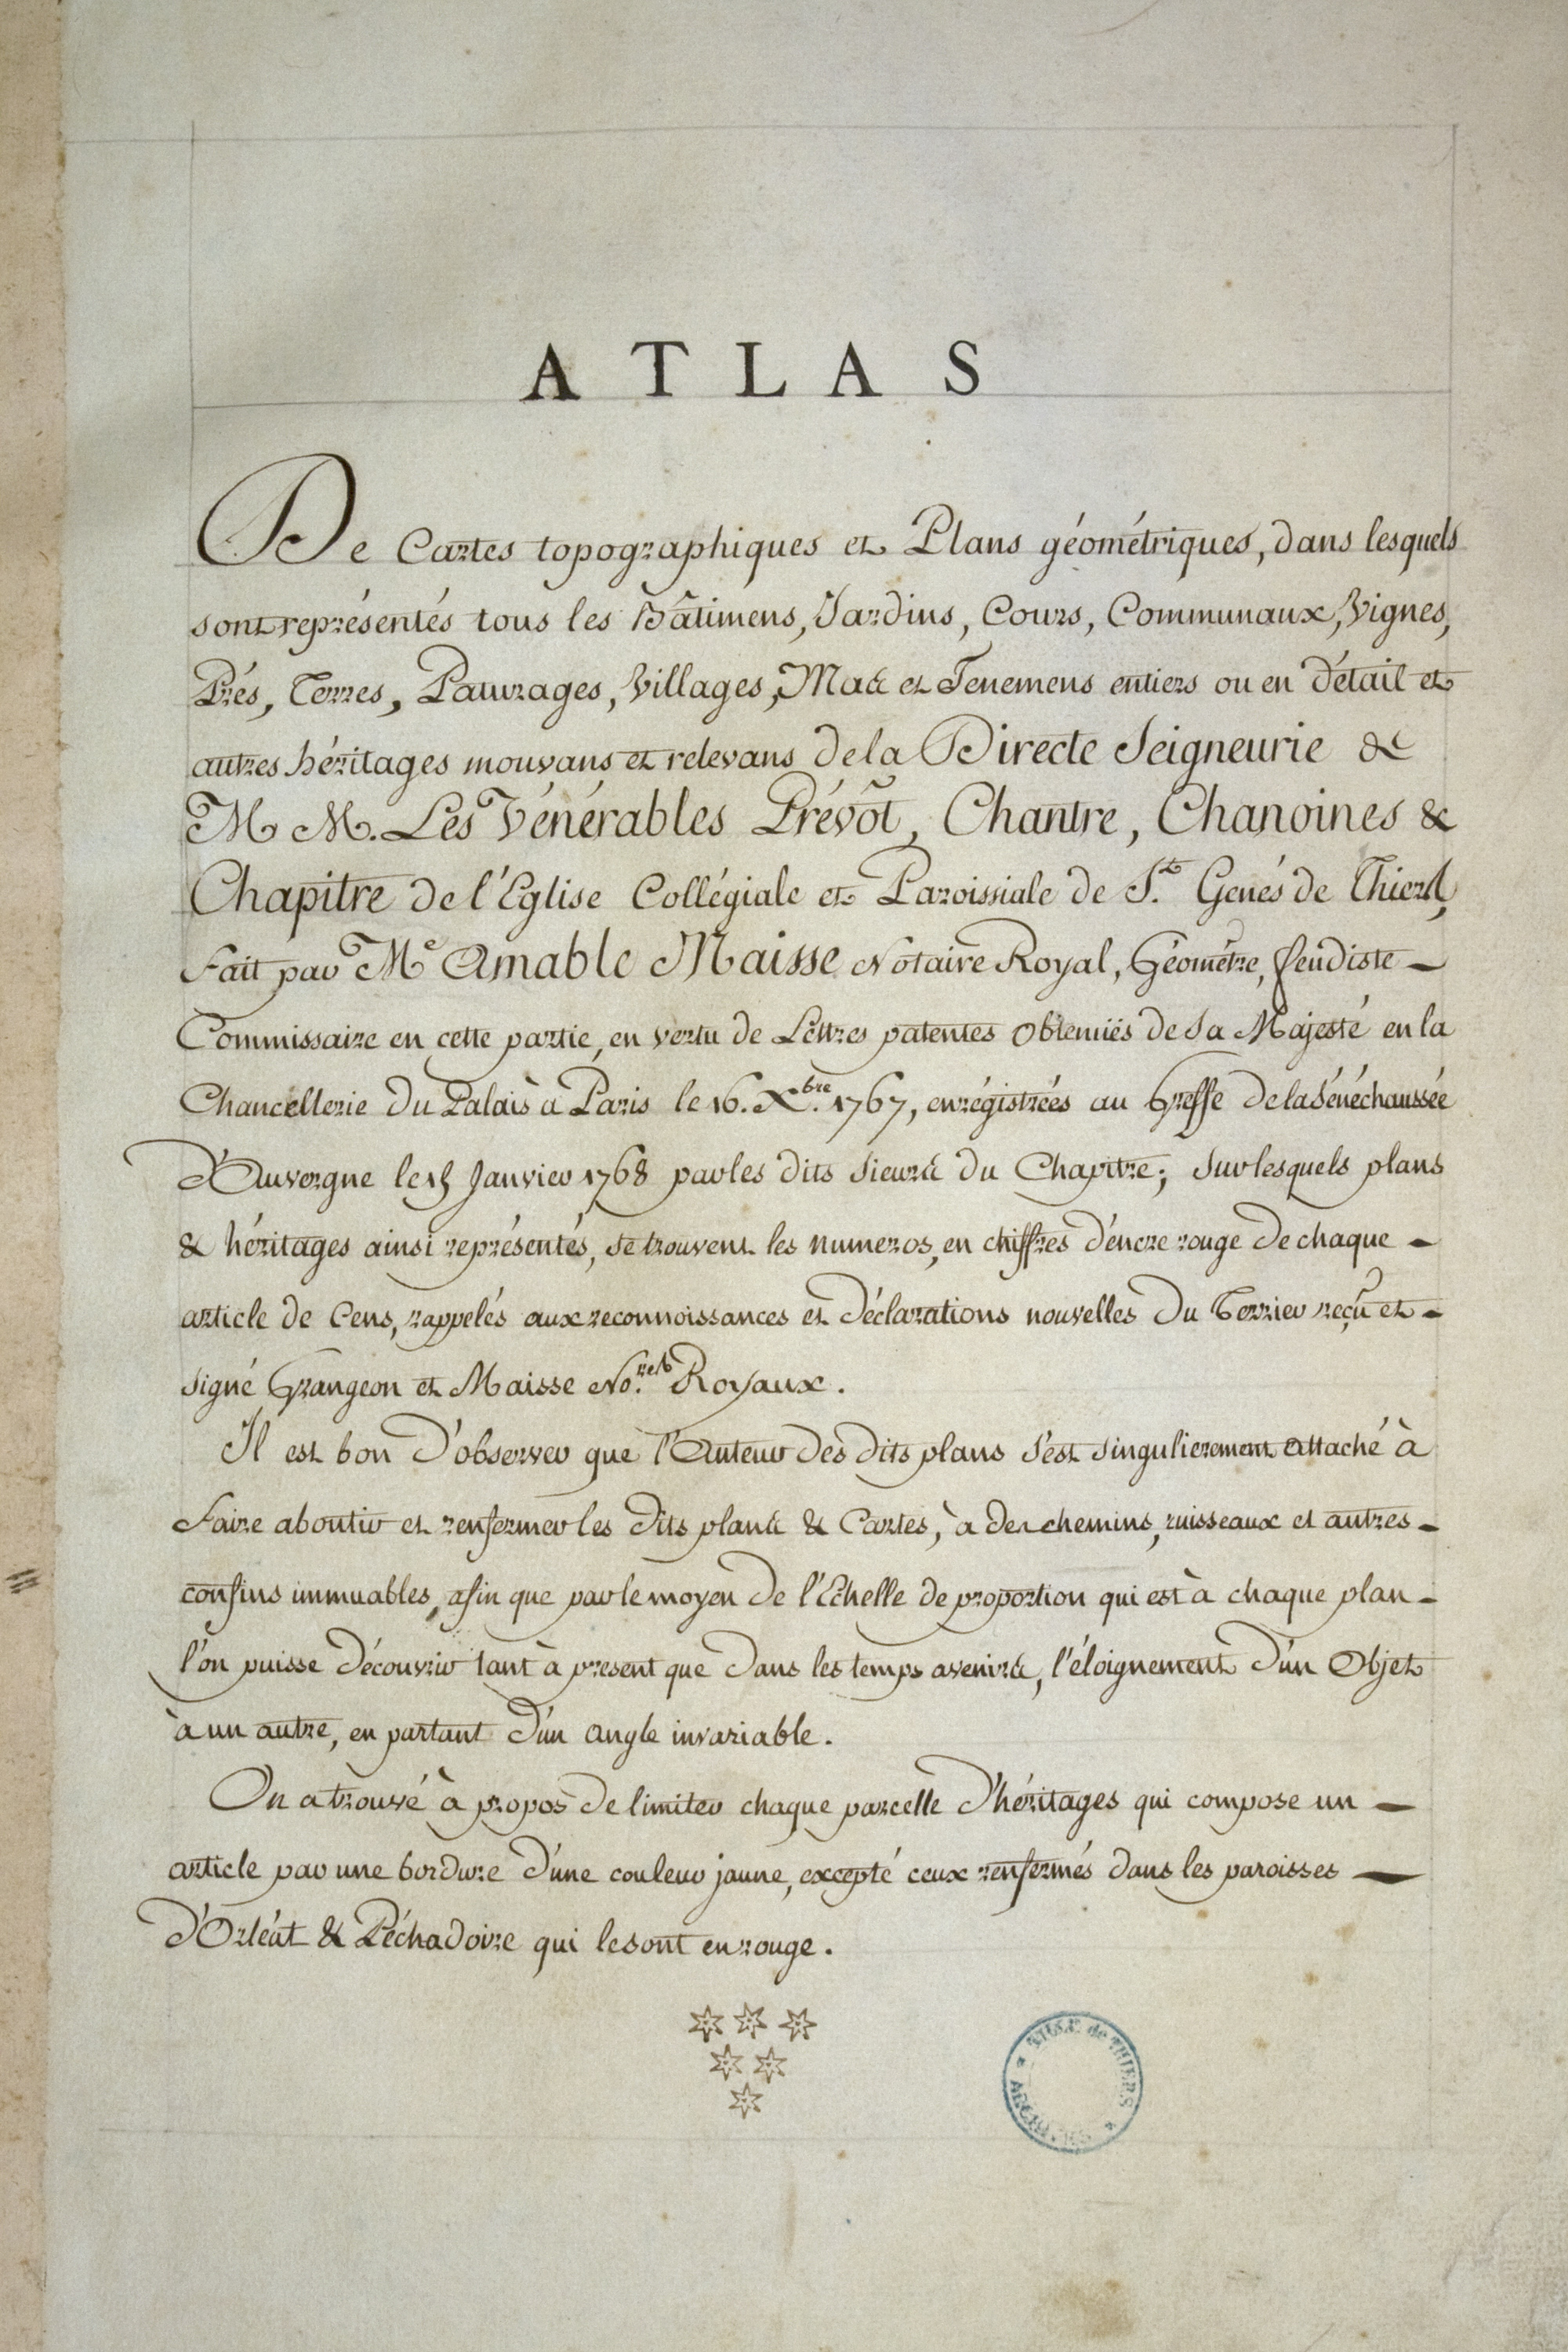 ATLAS
De Cartes topographiques et Plans géométriques, dans lesquels
sont représentés tous les Bâtimens, Jardins, Cours, Communaux, Vignes,
Prés, Terres, Paturages, Villages, Mas et Tenemens entiers ou en détail et
autres héritages mouvans et relevans de la Directe Seigneurie de
M M. Les Vénérables Prévôt, Chantre, Chanoines &
Chapitre de l'Eglise Collégiale et Paroissiale de St. Genés de Thiers,
Fait par Me Amable Maisse Notaire Royal, Géométre, feudiste -
Commissaire en cette partie, en vertu de Lettres patentes obtenües de Sa Majesté en la
Chancellerie du Palais à Paris le 16. Xbre. 1767, enrégistrées au Greffe de la Sénéchaussée
d'Auvergne le 15 Janvier 1768 par les dits Sieurs du Chapitre; Sur lesquels plans
& héritages ainsi représentés, se trouvent les numeros, en chiffres d'encre rouge de chaque -
article de Cens, rappelés aux reconnoissances et déclarations nouvelles du Terrier reçu et -
signé Grangeon et Maisse No.res Royaux.
Il est bon d'observer que l'Auteur des dits plans s'est singulierement attaché à
Faire aboutir et renfermer les dits plans & Cartes, à des chemins, ruisseaux et autres -
confins immuables, afin que par le moyen de l'Echelle de proportion qui est à chaque plan -
l'on puisse découvrir tant à present que dans les temps avenirs, l'éloignement d'un Objet
à un autre, en partant d'un angle invariable.
On a trouvé à propos de limiter chaque parcelle d'héritages qui compose un -
article par une bordure d'une couleur jaune, excepté ceux renfermés dans les paroisses -
d'Orléat & Péchadoire qui le sont en rouge.
de THIERS